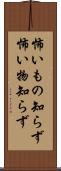 怖いもの知らず
怖い物知らず